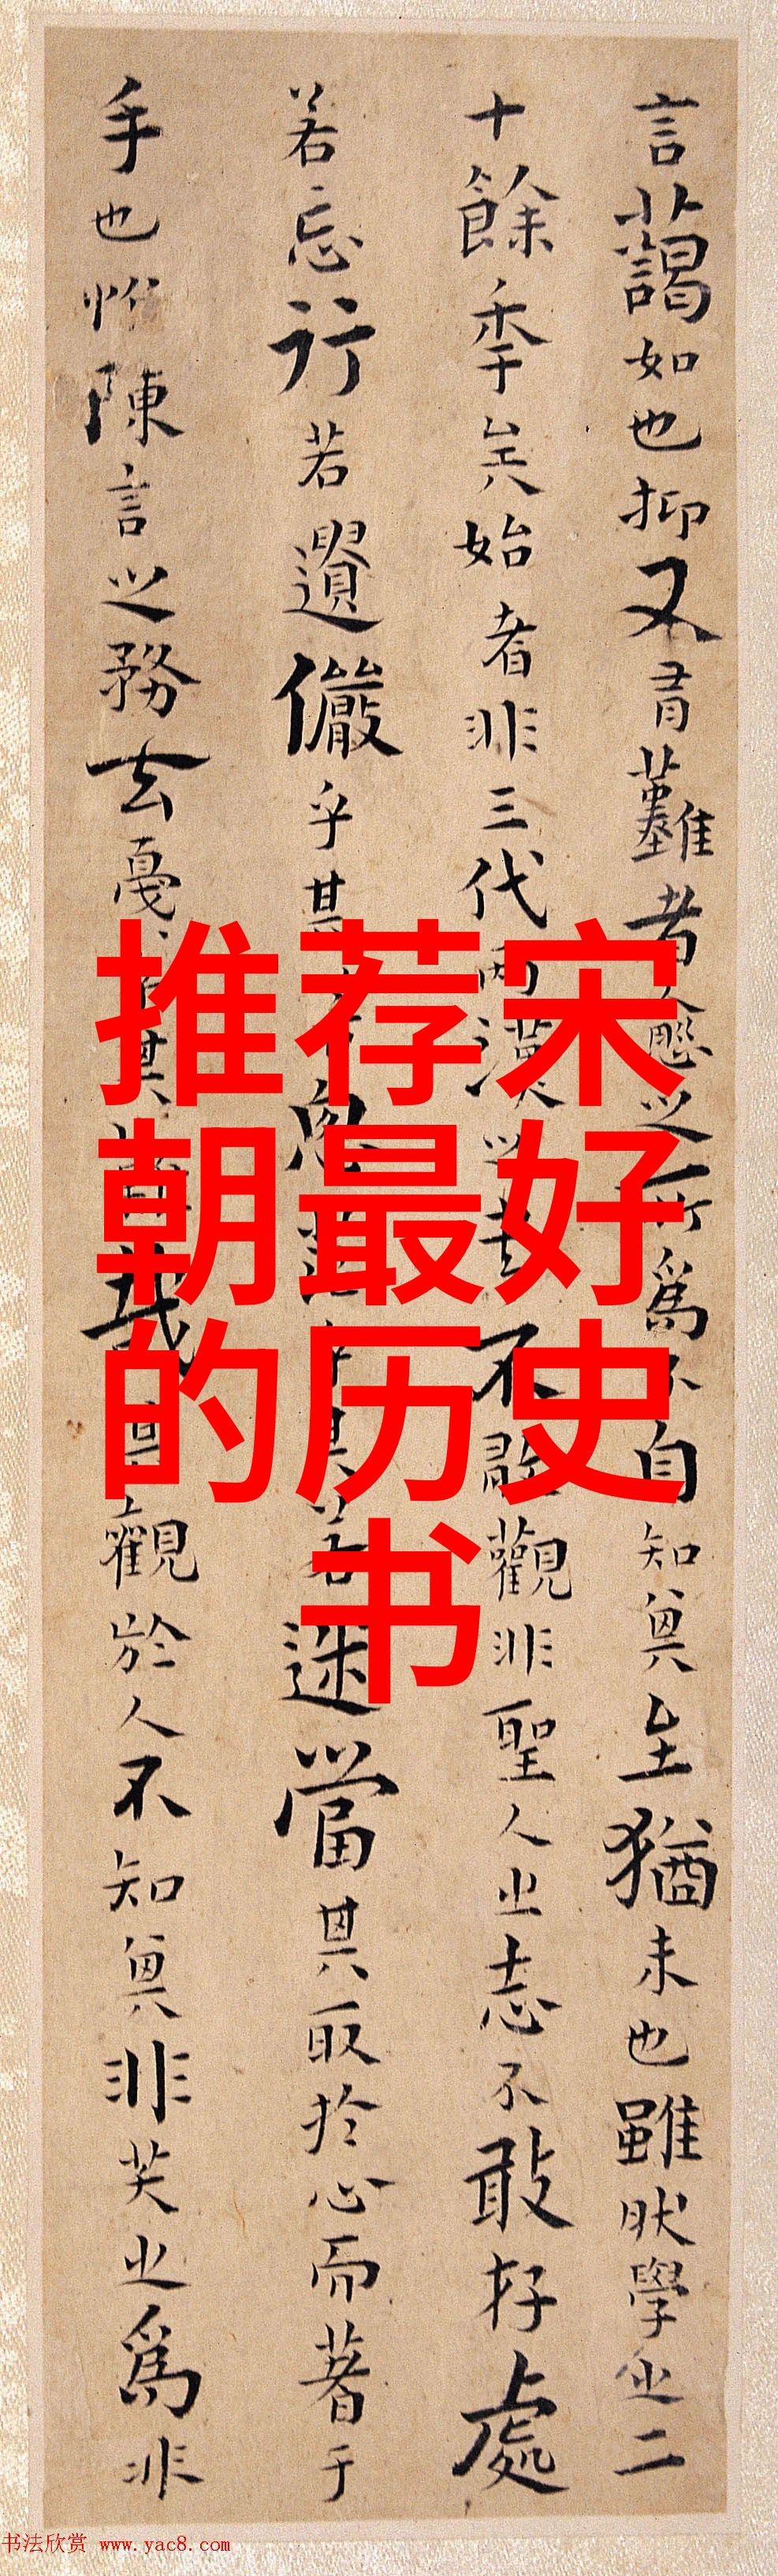 言藹如也抑又有難者愈之所爲不自知其至猶未也雖然學之二
十餘年矣始者非三代兩漢之書不敢觀非聖人之志不敢存處
若忘行若遺儼乎其若思茫乎其若迷當其取於心而著于
手也惟陳言之務去戛 其 哉其觀於人不知其非笑之爲非
推荐宋
朝最好
的历史
书
书法欣赏 www.yac8.com